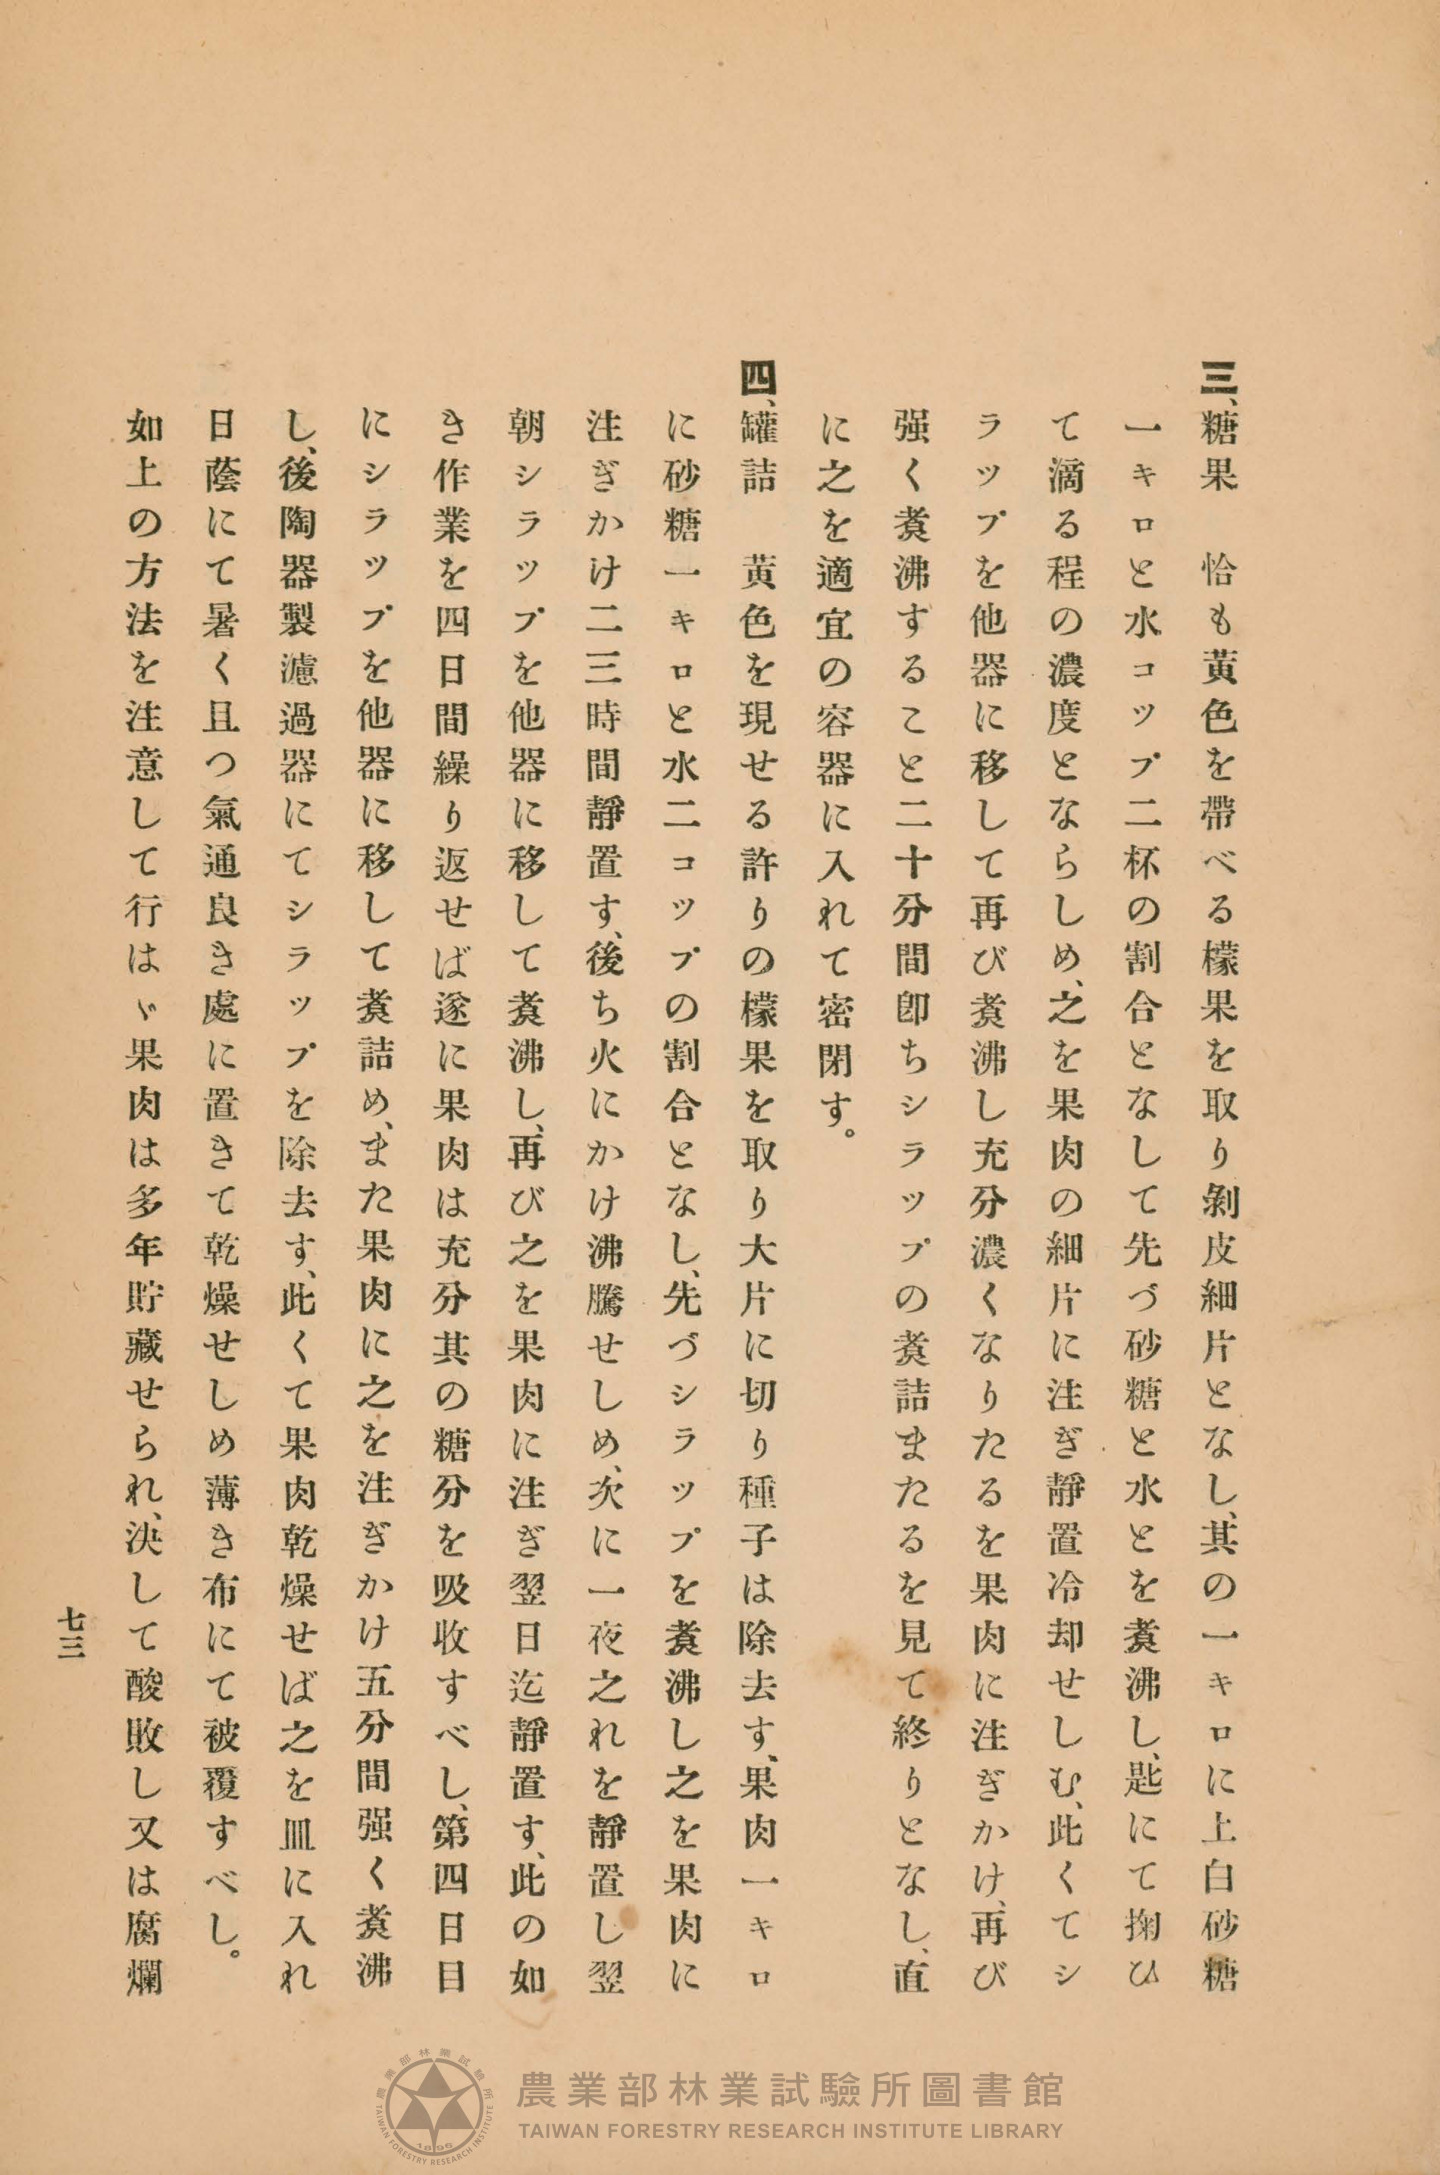 三、糖果　恰も黃色を帶べる檬果を取り剝皮細片となし、其の一キロに上白砂糖
一キロと水コップ二杯の割合となして先づ砂糖と水とを煑沸し、匙にて掬ひ
て滴る程の濃度とならしめ、之を果肉の細片に注ぎ靜置冷却せしむ、此くてシ
ラップを他器に移して再び煑沸し充分濃くなりたるを果肉に注ぎかけ、再び
强く煑沸すること二十分間卽ちシラップの煑詰またるを見て終りとなし、直
に之を適宜の容器に入れて密閉す。
四、罐詰　黃色を現せる許りの檬果を取り大片に切り種子は除去す、果肉一キロ
に砂糖一キロと水二コップの割合となし、先づシラップを煑沸し之を果肉に
注ぎかけ二三時間靜置す、後ち火にかけ沸騰せしめ、次に一夜之れを靜置し翌
朝シラップを他器に移して煑沸し、再び之を果肉に注ぎ翌日迄靜置す、此の如
き作業を四日間繰り返せば遂に果肉は充分其の糖分を吸收すべし、第四日目
にシラップを他器に移して煑詰め、また果肉に之を注ぎかけ五分間强く煑沸
し、後陶器製濾過器にてシラップを除去す、此くて果肉乾燥せば之を皿に入れ
日蔭にて暑く且つ氣通良き處に置きて乾燥せしめ薄き布にて被覆すべし。
如上の方法を注意して行はゞ果肉は多年貯藏せられ、決して酸敗し又は腐爛
七三
農業部林業試驗所圖書館
TAIWAN FORESTRY RESEARCH INSTITUTE LIBRARY
農業部林業試驗所
TAIWAN FORESTRY RESEARCH INSTITUTE
1896